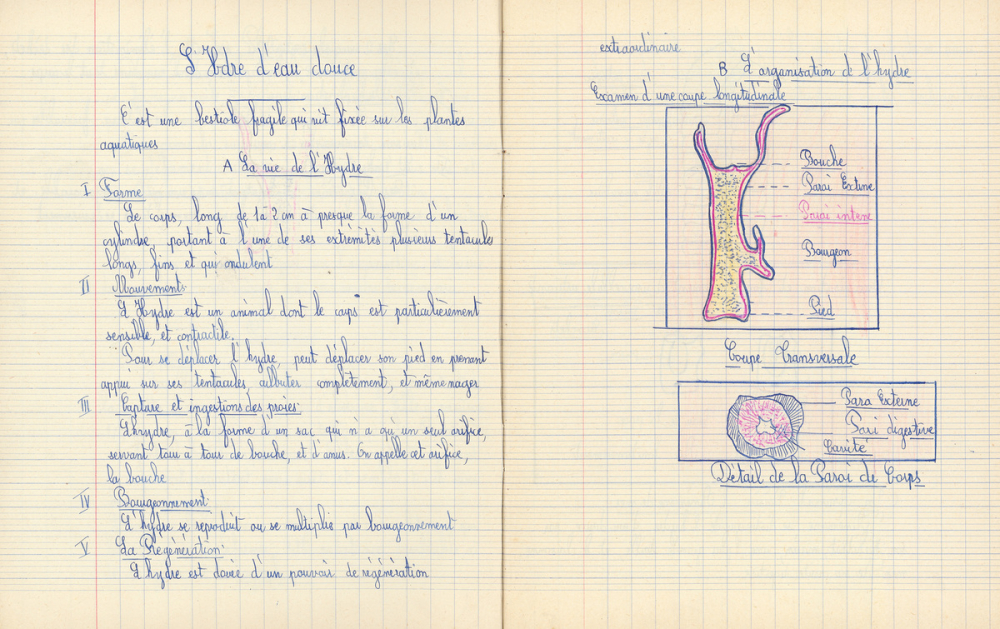 L'Hydre d'eau douce
C'est une bestiole fragile qui vit fixée sur les plantes
aquatiques
A La vie de l'Hydre
I Forme
Le corps, long de 1 à 2 cm à presque la forme d'un
cylindre, portant à l'une de ses extrémités plusieurs tentacules
longs, fins et qui ondulent
II Mouvements
L'Hydre est un animal dont le corps est particulièrement
sensible, et contractile.
Pour se déplacer l'hydre, peut déplacer son pied en prenant
appui sur ses tentacules, culbuter complètement, et même nager
III Capture et ingestions des proies
L'hydre, à la forme d'un sac qui n'a qu'un seul orifice,
servant tour à tour de bouche, et d'anus. On appelle cet orifice,
la bouche
IV Bourgeonnement:
L'hydre se reproduit ou se multiplie par bourgeonnement
V La Régénération:
L'hydre est douée d'un pouvoir de régénération
extraordinaire
B L'organisation de l'hydre
Examen d'une coupe longitudinale
Bouche
Paroi Extine
Paroi interne
Bourgeon
Pied
Coupe Transversale
Para Externe
Pari digestive
Cavité
Détail de la Paroi du Corps